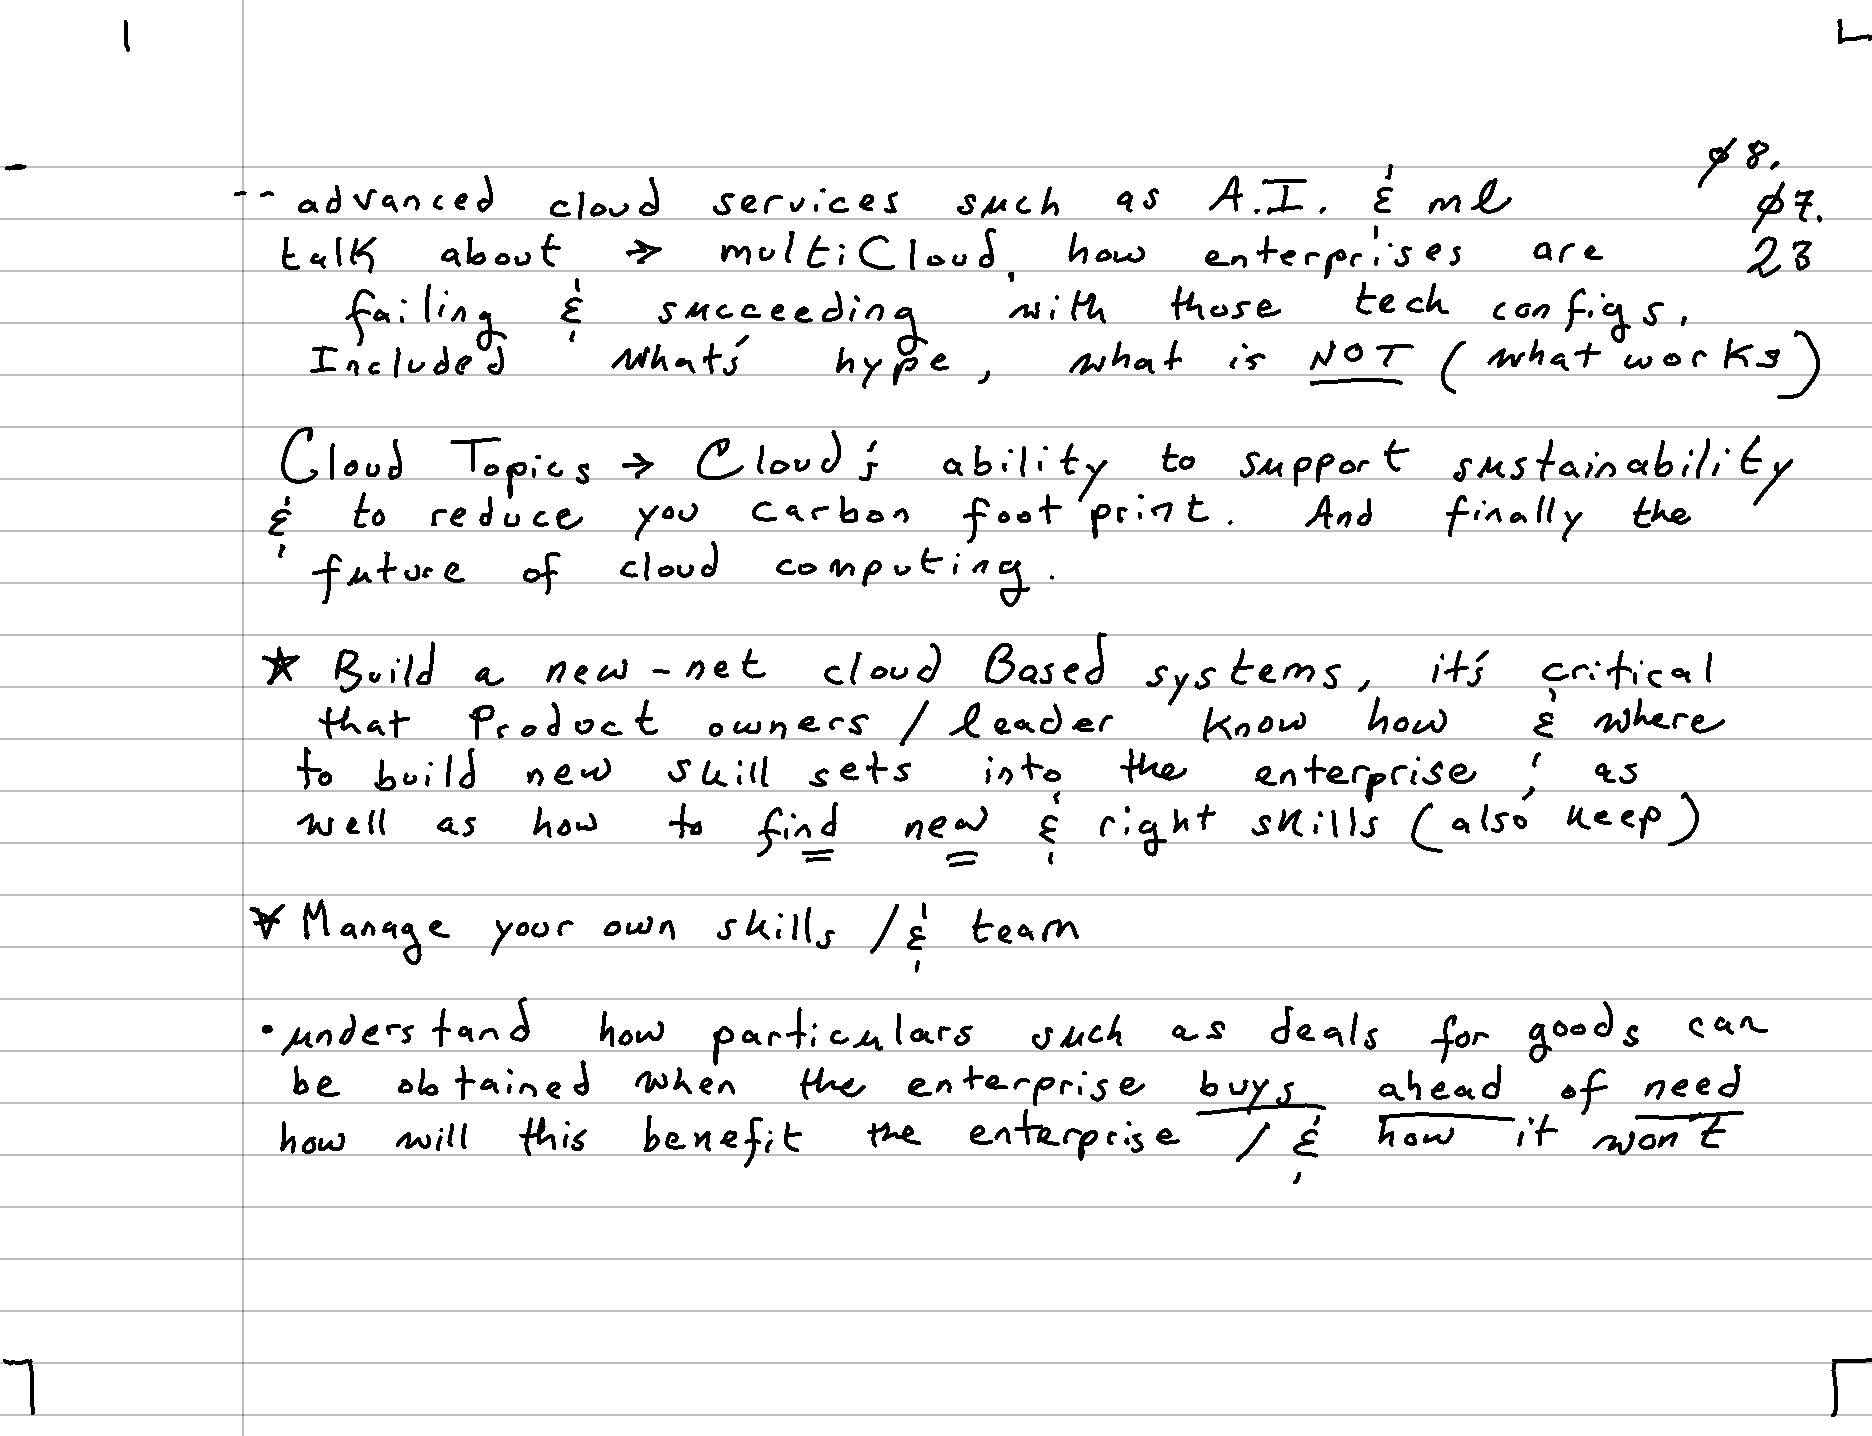 ø8.
-- advanced cloud services such as A.I. & ml ø7.
talk about → multiCloud, how enterprises are 23
failing & succeeding with those tech configs.
Included what's hype, what is NOT (what works)
Cloud Topics → Cloud's ability to support sustainability
& to reduce you carbon foot print. And finally the
future of cloud computing.
★ Build a new-net cloud Based systems, it's critical
that Product owners / leader know how & where
to build new skill sets into the enterprise, as
well as how to find new & right skills (also keep)
★ Manage your own skills /& team
• understand how particulars such as deals for goods can
be obtained when the enterprise buys ahead of need
how will this benefit the enterprise / & how it won't